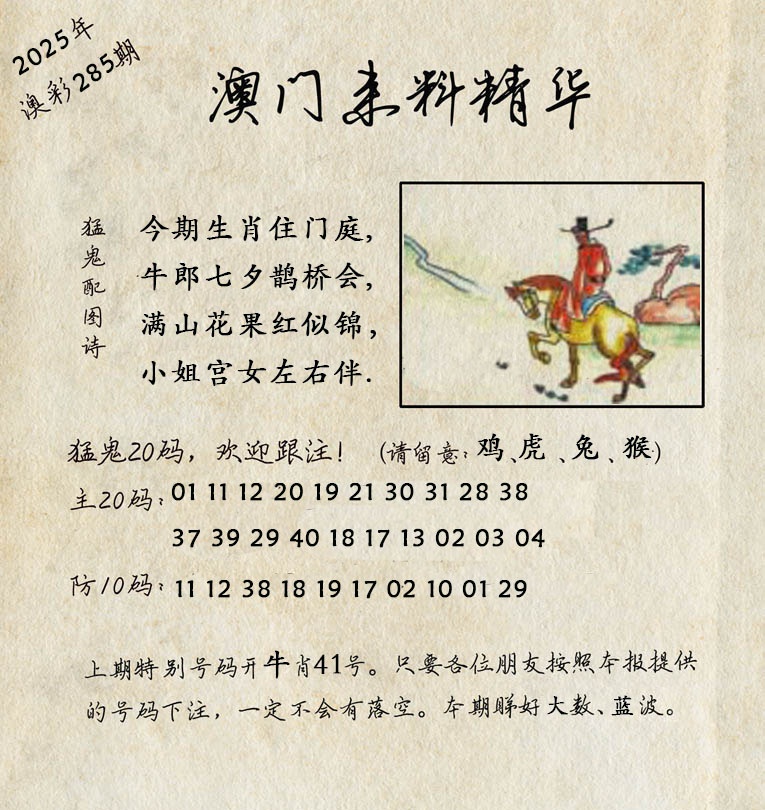 2025年
澳彩285期
澳门来料精华
猛鬼配图诗
今期生肖住门庭,
牛郎七夕鹊桥会,
满山花果红似锦,
小姐宫女左右伴.
猛鬼20码，欢迎跟注！（请留意：鸡、虎、兔、猴）
主20码：01 11 12 20 19 21 30 31 28 38
37 39 29 40 18 17 13 02 03 04
防10码：11 12 38 18 19 17 02 10 01 29
上期特别号码开牛肖41号。只要各位朋友按照本报提供
的号码下注，一定不会有落空。本期睇好大数、蓝波。